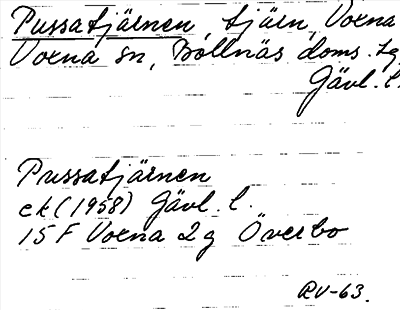 Pussatjärnen, tjärn, Voxna
Voxna sn, Bollnäs doms. tg
Gävl. l.
Pussatjärnen
ek (1958) Gävl. l.
15 F Voxna 2 g Överbo
RV-63.